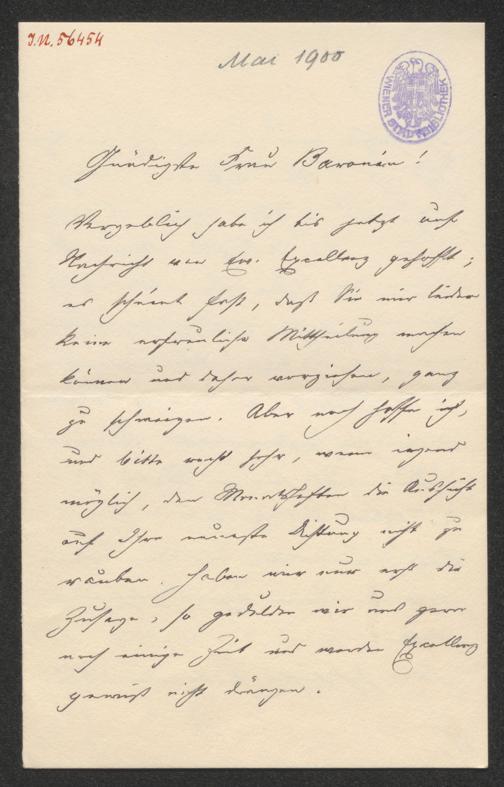 J.N. 56454
Mai 1900
WIENER STADTBIBLIOTHEK
Gnädigste Frau Baronin!
Vergeblich habe ich bis jetzt auf
Nachricht von Ew. Excellenz gehofft;
es scheint fast, daß Sie mir leider
keine erfreuliche Mittheilung machen
können und daher vorziehen, ganz
zu schweigen. Aber noch hoffe ich,
und bitte recht sehr, wenn irgend
möglich, den Monatsheften die Aussicht
auf Ihre neueste Dichtung nicht zu
rauben. Haben wir nur erst die
Zusage, so gedulden wir uns gern
noch einige Zeit und werden Excellenz
gewiß nicht drängen.